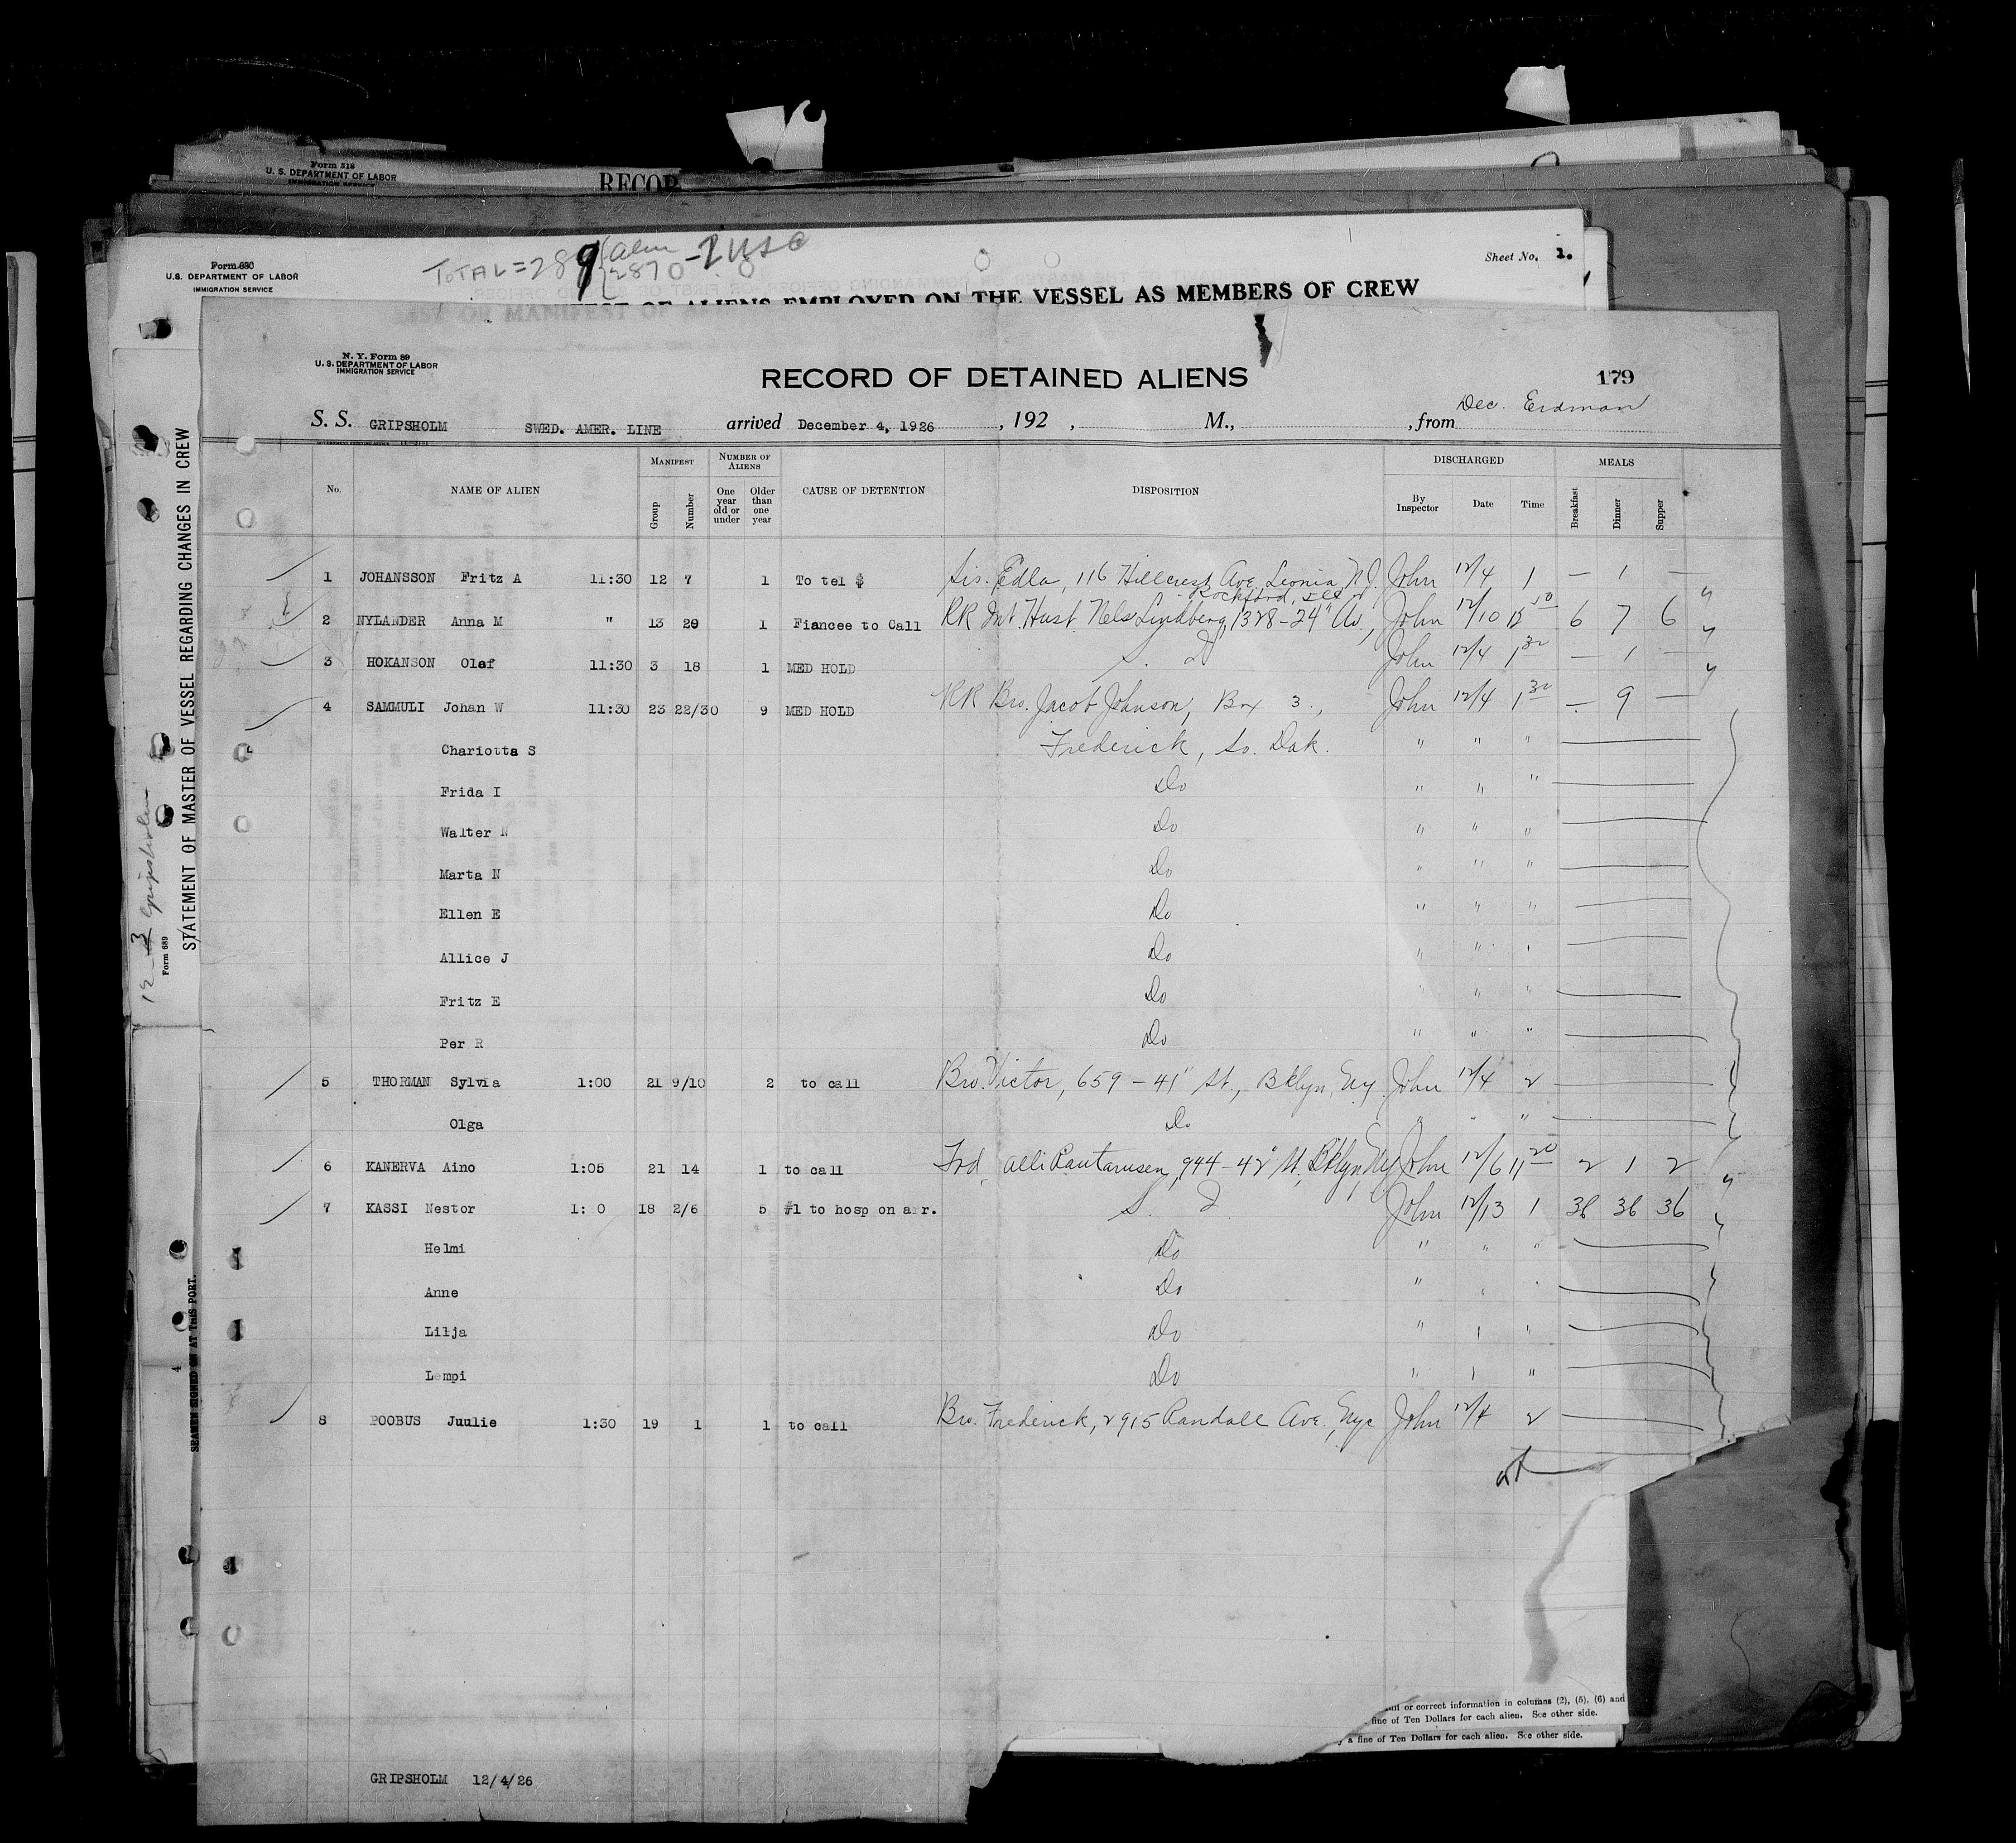 Form 518
U. S. DEPARTMENT OF LABOR
IMMIGRATION SERVICE
RECOR
TOTAL = 289
Form 680
U.S. DEPARTMENT OF LABOR
IMMIGRATION SERVICE
Sheet No. 1.
OF ALIENS EMPLOYED ON THE VESSEL AS MEMBERS OF CREW
N. Y. Form 89
U. S. DEPARTMENT OF LABOR
IMMIGRATION SERVICE
RECORD OF DETAINED ALIENS
179
Dec. Erdman
S. S. GRIPSHOLM SWED. AMER. LINE arrived December 4, 1926, 192 , M., , from
No. NAME OF ALIEN MANIFEST Group Number NUMBER OF ALIENS One year old or under Older than one year CAUSE OF DETENTION DISPOSITION DISCHARGED By Inspector Date Time MEALS Breakfast Dinner Supper
1 JOHANSSON Fritz A 11:30 12 7 1 To tel $ Sis. Edla, 116 Hillcrest Ave Leonia NJ. John 12/4 1 — 1 —
Rockford, Ill
2 NYLANDER Anna M " 13 29 1 Fiancee to Call RR Int. Husb. Nels Lindberg, 1328-24" Av, John 12/10 12 50 6 7 6
3 HOKANSON Olof 11:30 3 18 1 MED HOLD S. I John 12/4 1 30 — 1 —
4 SAMMULI Johan W 11:30 23 22/30 9 MED HOLD RR Bro. Jacob Johnson, Box 3, John 12/4 1 30 — 9 —
Chariotta S Frederick, So. Dak. " " "
Frida I Do " " "
Walter N Do " " "
Marta N Do " " "
Ellen E Do " " "
Allice J Do " " "
Fritz E Do " " "
Per R Do " " "
5 THORMAN Sylvia 1:00 21 9/10 2 to call Bro. Victor, 659-41" St., Bklyn, Ny. John 12/4 2
Olga Do " " "
6 KANERVA Aino 1:05 21 14 1 to call Frd. Aelli 944-42" St, Bklyn, Ny John 12/6 11 20 2 1 2
7 KASSI Nestor 1: 0 18 2/6 5 #1 to hosp on arr. S. I John 12/13 1 36 36 36
Helmi Do " " "
Anne Do " " "
Lilja Do " " "
Lempi Do " " "
8 POOBUS Juulie 1:30 19 1 1 to call Bro. Frederick, 2915 Randall Ave., Nyc John 12/4 2
GRIPSHOLM 12/4/26
full or correct information in columns (2), (5), (6) and
fine of Ten Dollars for each alien. See other side.
y a fine of Ten Dollars for each alien. See other side.
STATEMENT OF MASTER OF VESSEL REGARDING CHANGES IN CREW
Form 689
12-3 Gripsholm
SEAMEN SIGNED ON AT THIS PORT.
4